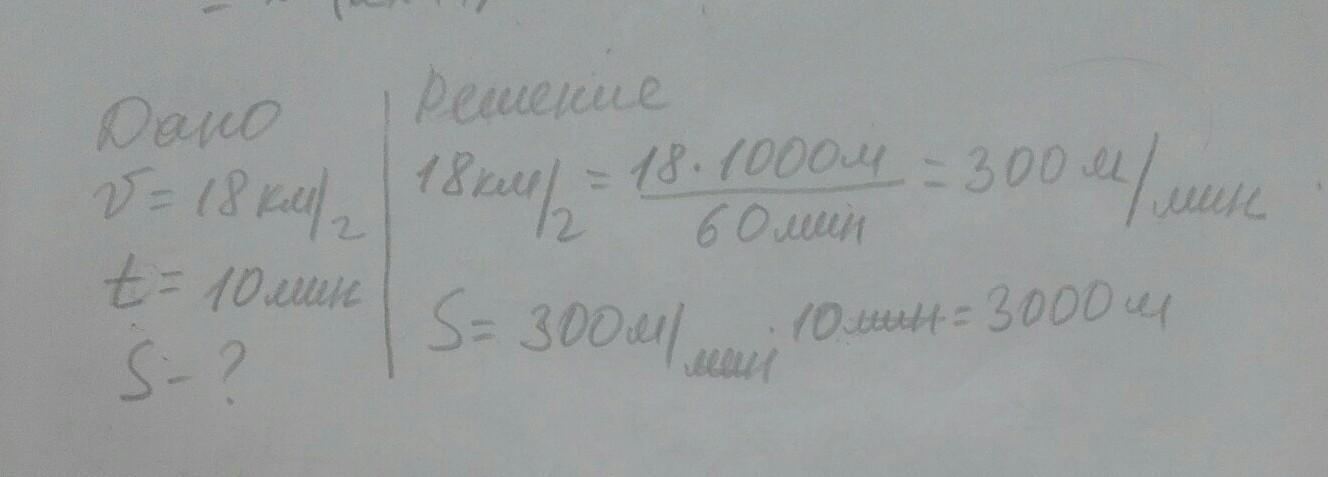 Дано
v = 18 км/г
t = 10 мин
S - ?
Решение
18 км/г = 18 · 1000 м / 60 мин = 300 м/мин
S = 300 м/мин · 10 мин = 3000 м